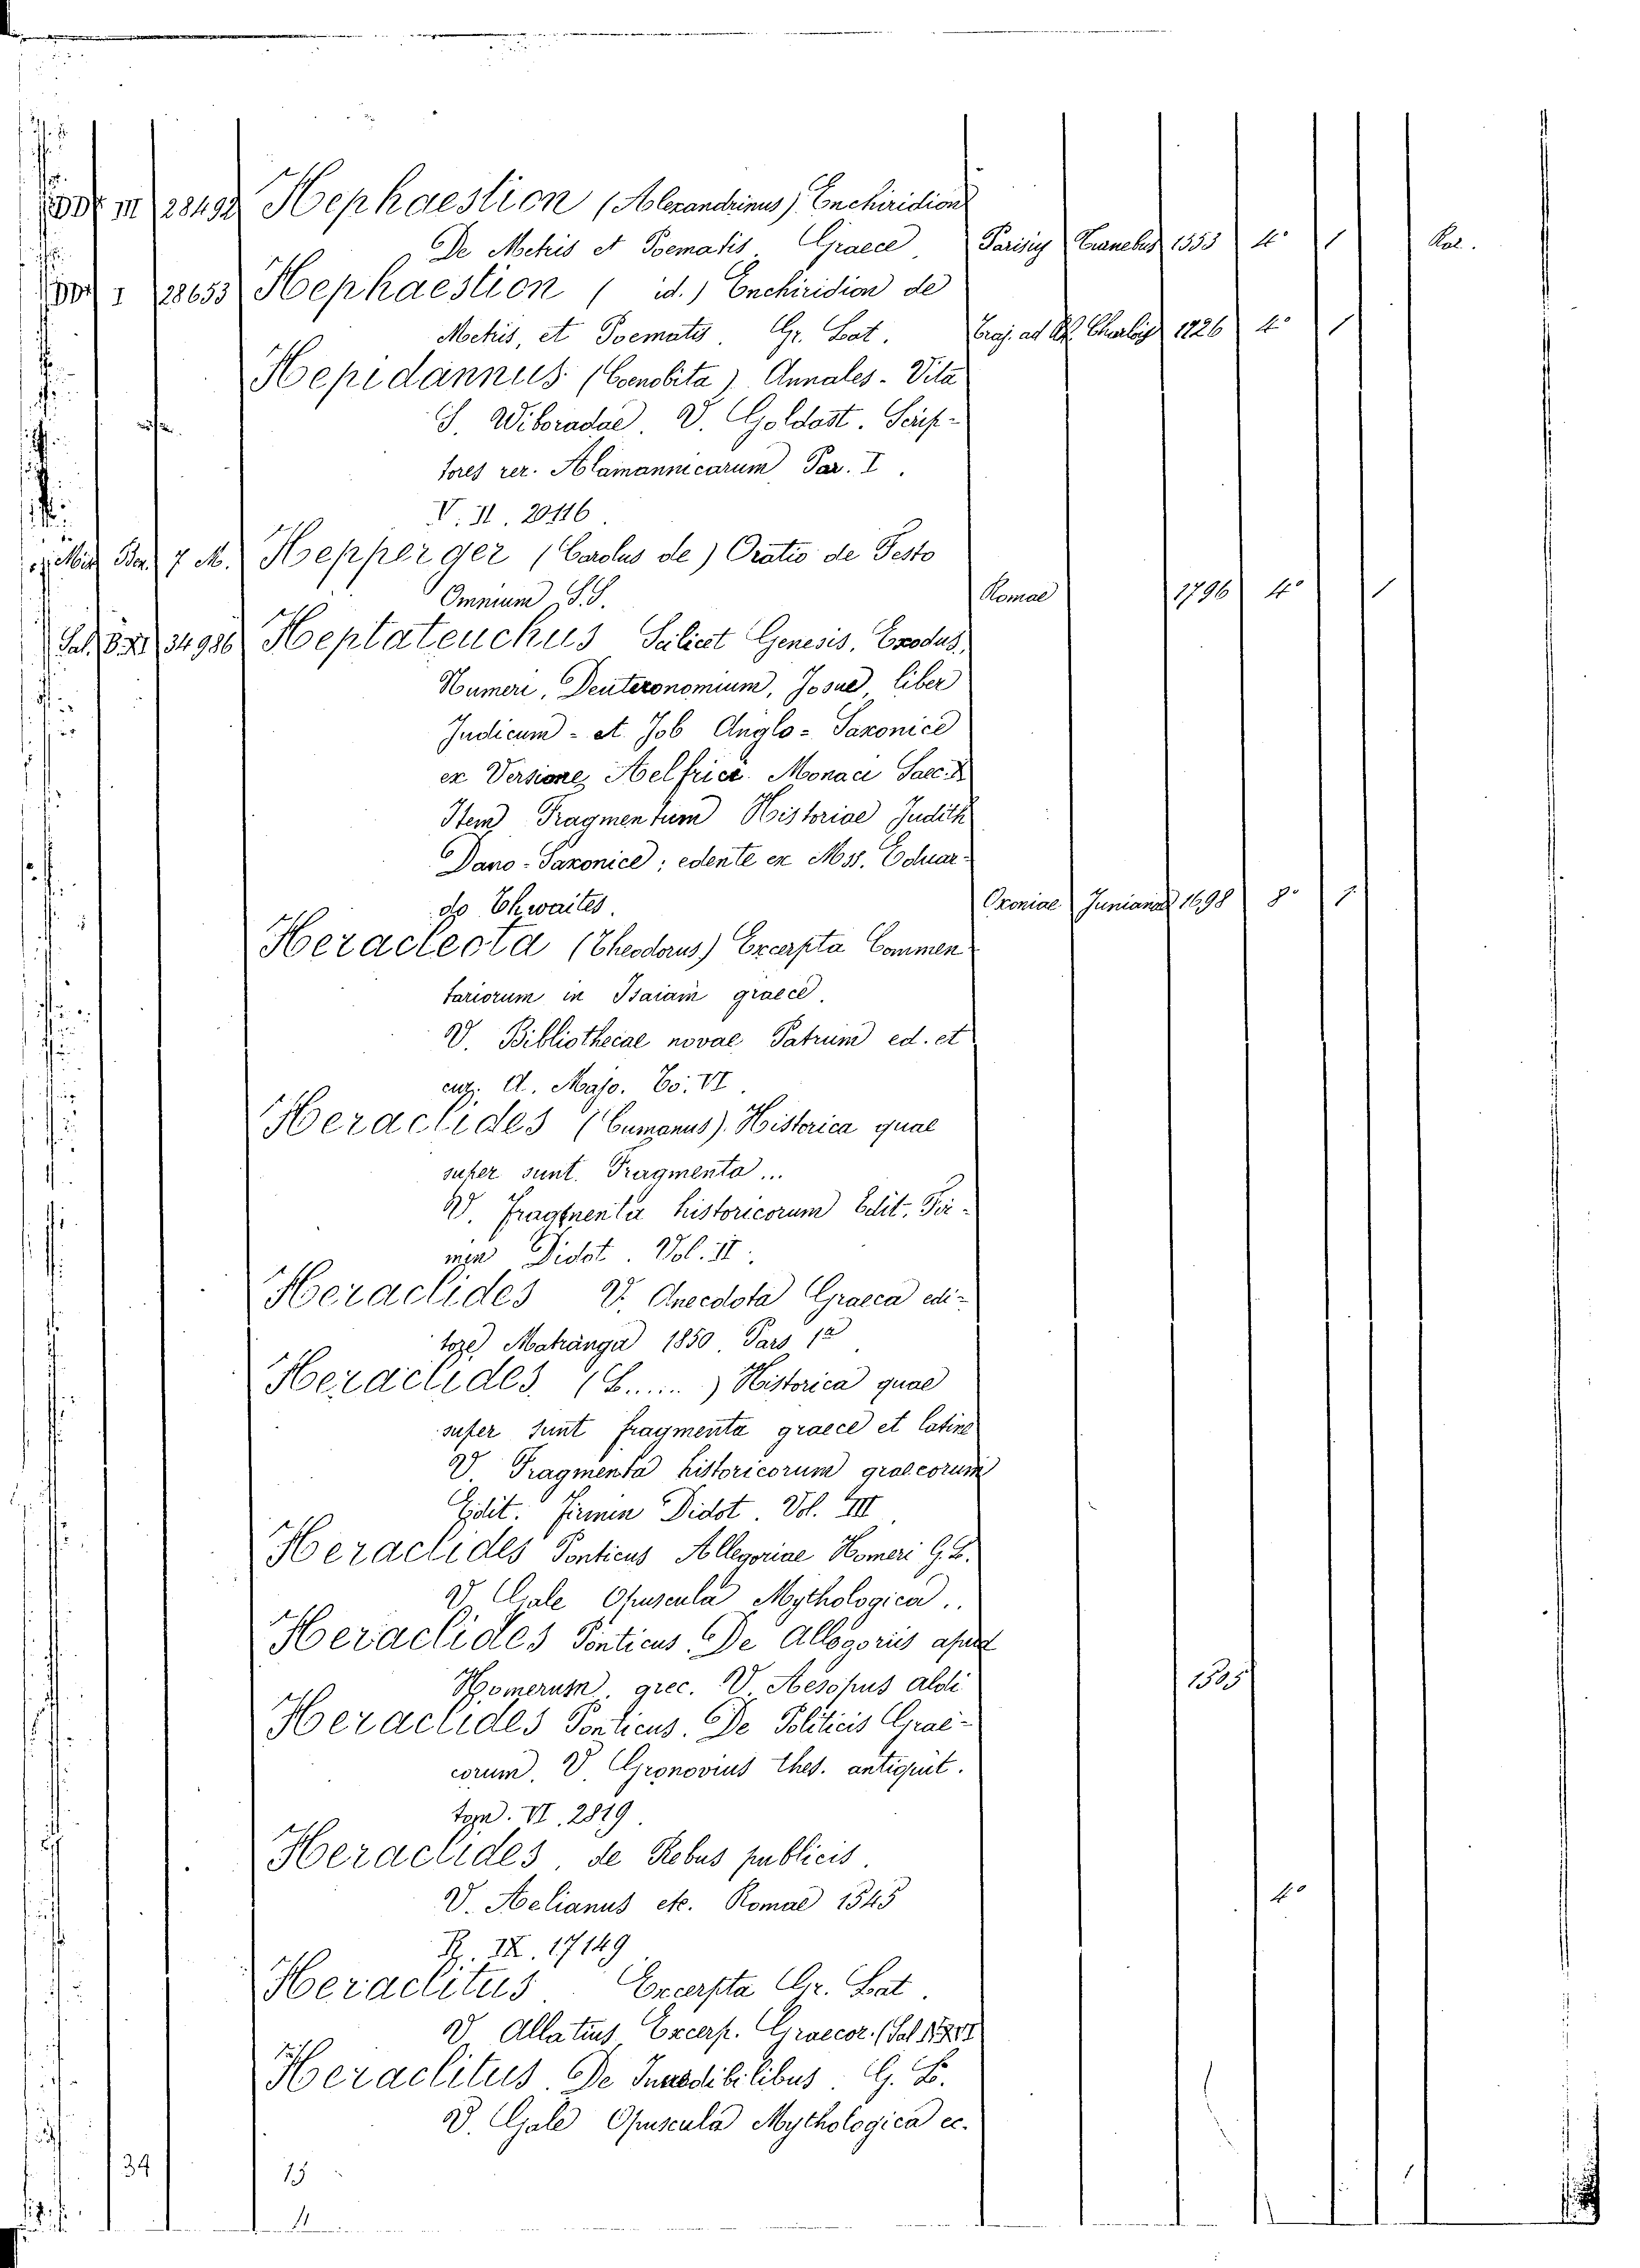 III 28492 Hephaestion (Alexandrinus) Enchiridion
De Metris et Poematis. Graece Parisiis Turnebus 1553 4° 1 Rel.
I 28653 Hephaestion ( id. ) Enchiridion de
Metris, et Poematis. Gr. Lat. Traj. ad Rh. 1726 4° 1
Hepidannus (Coenobita) Annales - Vita
S. Wiboradae. V. Goldast. Scrip-
tores rer. Alamannicarum Par. I.
V. II. 20116
Ber. 7 M. Hepperger (Carolus de) Oratio de Festo
Omnium S.S. Romae 1796 4° 1
34986 Heptateuchus Scilicet Genesis, Exodus,
Numeri, Deuteronomium, Josue, liber
Judicum - et Job Anglo-Saxonice
ex Versione Aelfrici Monaci Saec. X
Item Fragmentum Historiae Judith
Dano-Saxonice; edente ex Mss. Eduar-
do Thwaites. Oxoniae Junianae 1698 8° 1
Heracleota (Theodorus) Excerpta Commen
tariorum in Isaiam graece.
V. Bibliothecae novae Patrum ed. et
cur. A. Majo. To. VI.
Heraclides (Cumanus). Historica quae
super sunt. Fragmenta...
V. Fragmenta historicorum Edit. Fir-
min Didot. Vol. II.
Heraclides V. Anecdota Graeca edi-
tore Matranga 1850 Pars 1a
Heraclides (L......) Historica quae
super sunt fragmenta graece et latine
V. Fragmenta historicorum graecorum
Edit. Firmin Didot. Vol. III
Heraclides Ponticus Allegoriae Homeri G. L.
V. Gale Opuscula Mythologica..
Heraclides Ponticus. De Allegoriis apud
Homerum. grec. V. Aesopus aldi 1505
Heraclides Ponticus. De Politicis Grae-
corum. V. Gronovius Thes. antiquit.
tom. VI. 2819.
Heraclides, de Rebus publicis.
V. Aelianus etc. Romae 1545 4°
R. IX. 17149
Heraclitus Excerpta Gr. Lat.
V. Allatius Excerp. Graecor.
Heraclitus. De Incredibilibus. G. L.
V. Gale Opuscula Mythologica ec.
34 15